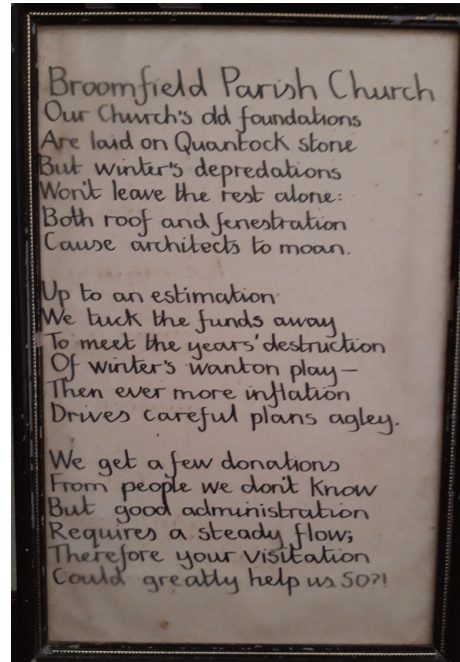 Broomfield Parish Church
Our Church's old foundations
Are laid on Quantock stone
But winter's depredations
Won't leave the rest alone:
Both roof and fenestration
Cause architects to moan.
Up to an estimation
We tuck the funds away
To meet the years' destruction
Of winter's wanton play—
Then ever more inflation
Drives careful plans agley.
We get a few donations
From people we don't know
But good administration
Requires a steady flow;
Therefore your visitation
Could greatly help us SO?!